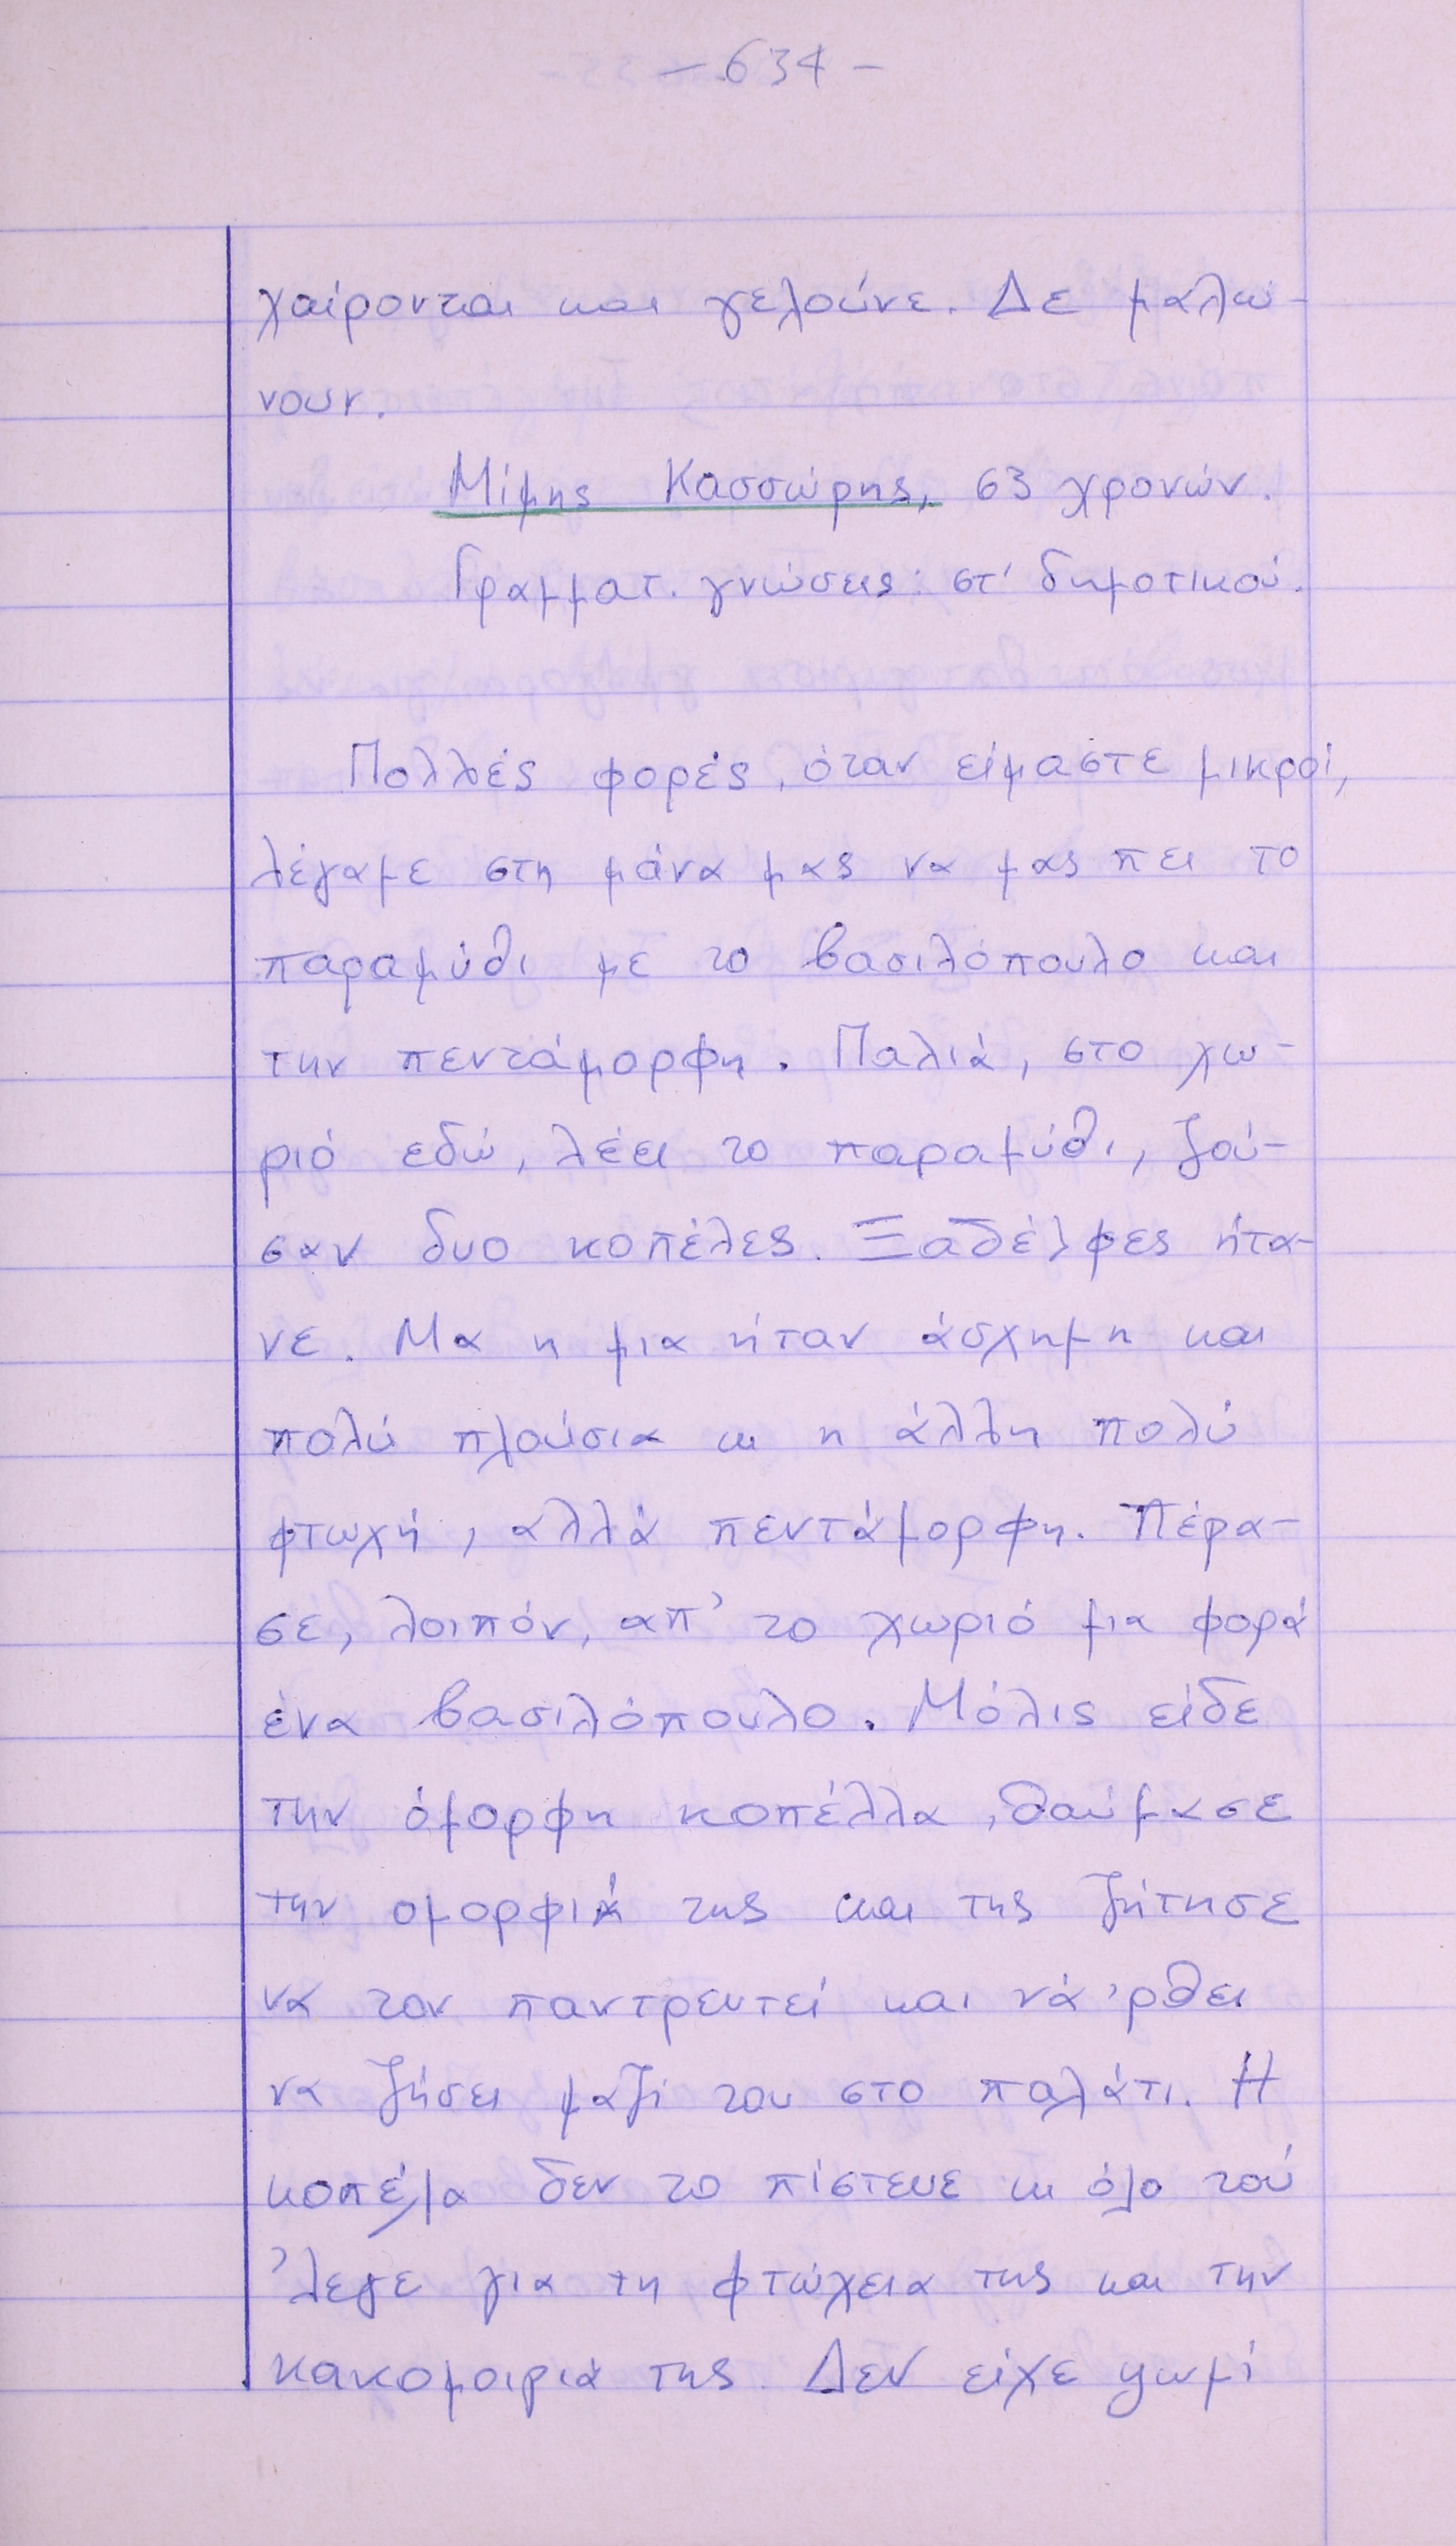 - 634 -
χαίρονται και γελούνε. Δε μαλώ-
νουν.
Μίμης Κασσώρης, 63 χρονών.
Γραμματ. γνώσεις: στ' δημοτικού.
Πολλές φορές, όταν είμαστε μικροί,
λέγαμε στη μάνα μας να μας πει το
παραμύθι με το βασιλόπουλο και
την πεντάμορφη. Παλιά, στο χω-
ριό εδώ, λέει το παραμύθι, ζού-
σαν δυο κοπέλες. Ξαδέλφες ήτα-
νε. Μα η μια ήταν άσχημη και
πολύ πλούσια κι η άλλη πολύ
φτωχή, αλλά πεντάμορφη. Πέρα-
σε, λοιπόν, απ' το χωριό μια φορά
ένα βασιλόπουλο. Μόλις είδε
την όμορφη κοπέλλα, θαύμασε
την ομορφιά της και της ζήτησε
να τον παντρευτεί και νά 'ρθει
να ζήσει μαζί του στο παλάτι. Η
κοπέλα δεν το πίστευε κι όλο τού
'λεγε για τη φτώχεια της και την
κακομοιριά της. Δεν είχε ψωμί